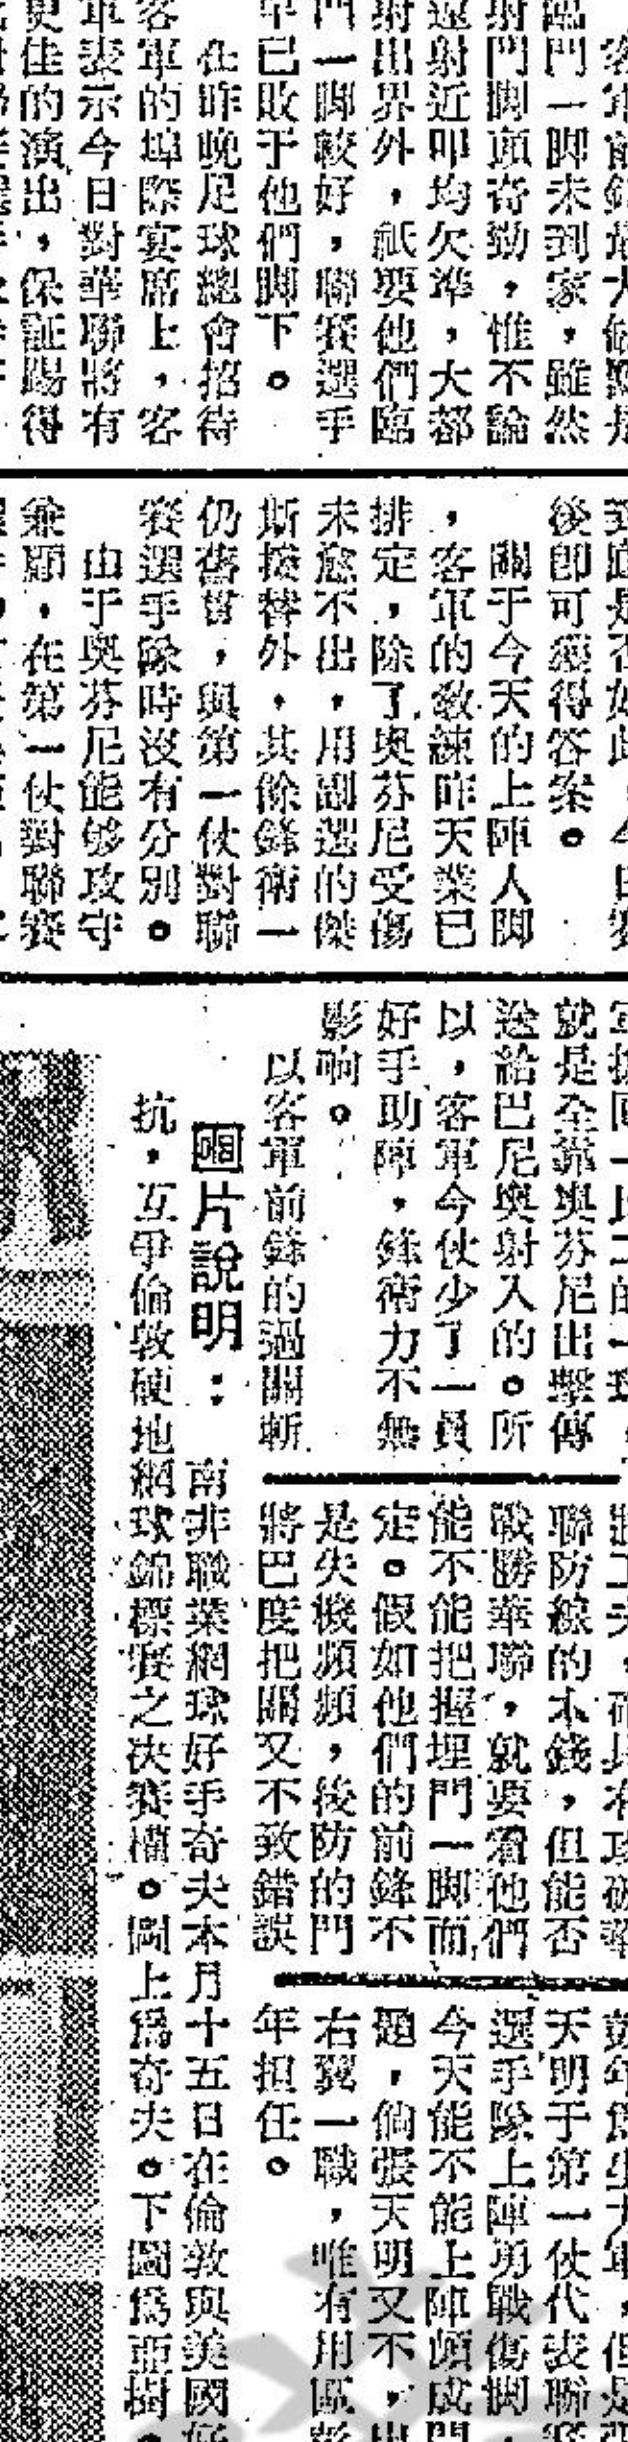 臨門一脚未到家，雖然
射門脚頭奇勁，惟不論
遠射近叩均欠準，大都
射出界外，祇要他們臨
門一脚較好，聯賽選手
早已敗于他們脚下。
在昨晚足球總會招待
客軍的埠際宴席上，客
軍表示今日對華聯將有
更佳的演出，保証賜得
後卽可獲得答案。
關于今天的上陣人脚
，客軍的敎練昨天業已
排定，除了奥芬尼受傷
未愈不出，用副選的傑
斯接替外，其餘鋒衛一
仍舊貫，與第一仗對聯
賽選手隊時沒有分別。
由于奥芬尼能够攻守
兼顧，在第一仗對聯賽
就是全靠奥芬尼出擊傳
送給巴尼奥射入的。所
以，客軍今仗少了一員
好手助陣，鋒衛力不無
影响。
以客軍前鋒的過關斬
聯防線的本錢，但能否
戰勝華聯，就要看他們
能不能把握埋門一脚而
定。假如他們的前鋒不
是失機頻頻，後防的門
將巴度把關又不致錯誤
天明于第一仗代表聯賽
選手隊上陣勇戰傷脚，
今天能不能上陣頗成問
題，倘張天明又不出
右翼一職，唯有用區彭
年担任。
圖片説明：南非職業網球好手奇夫本月十五日在倫敦與美國好
抗，互爭倫敦硬地網球錦標賽之决賽權。圖上爲奇夫。下圖爲亜樹。